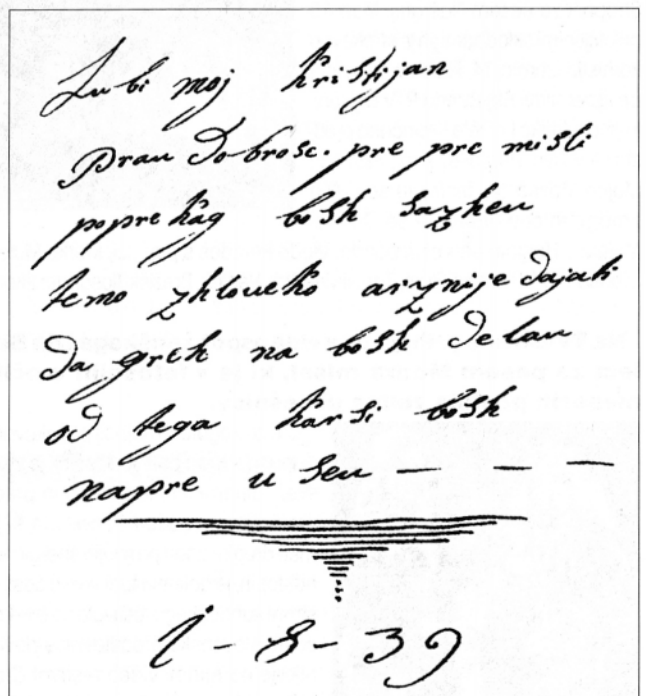 Lubi moj kristijan
Prau dobrosc. pre pre misli
popre kag bosh sazheu
temo zhloueko arznije dajati
da greh na bosh delau
od tega karsi bosh
napre u seu — — —
1-8-39